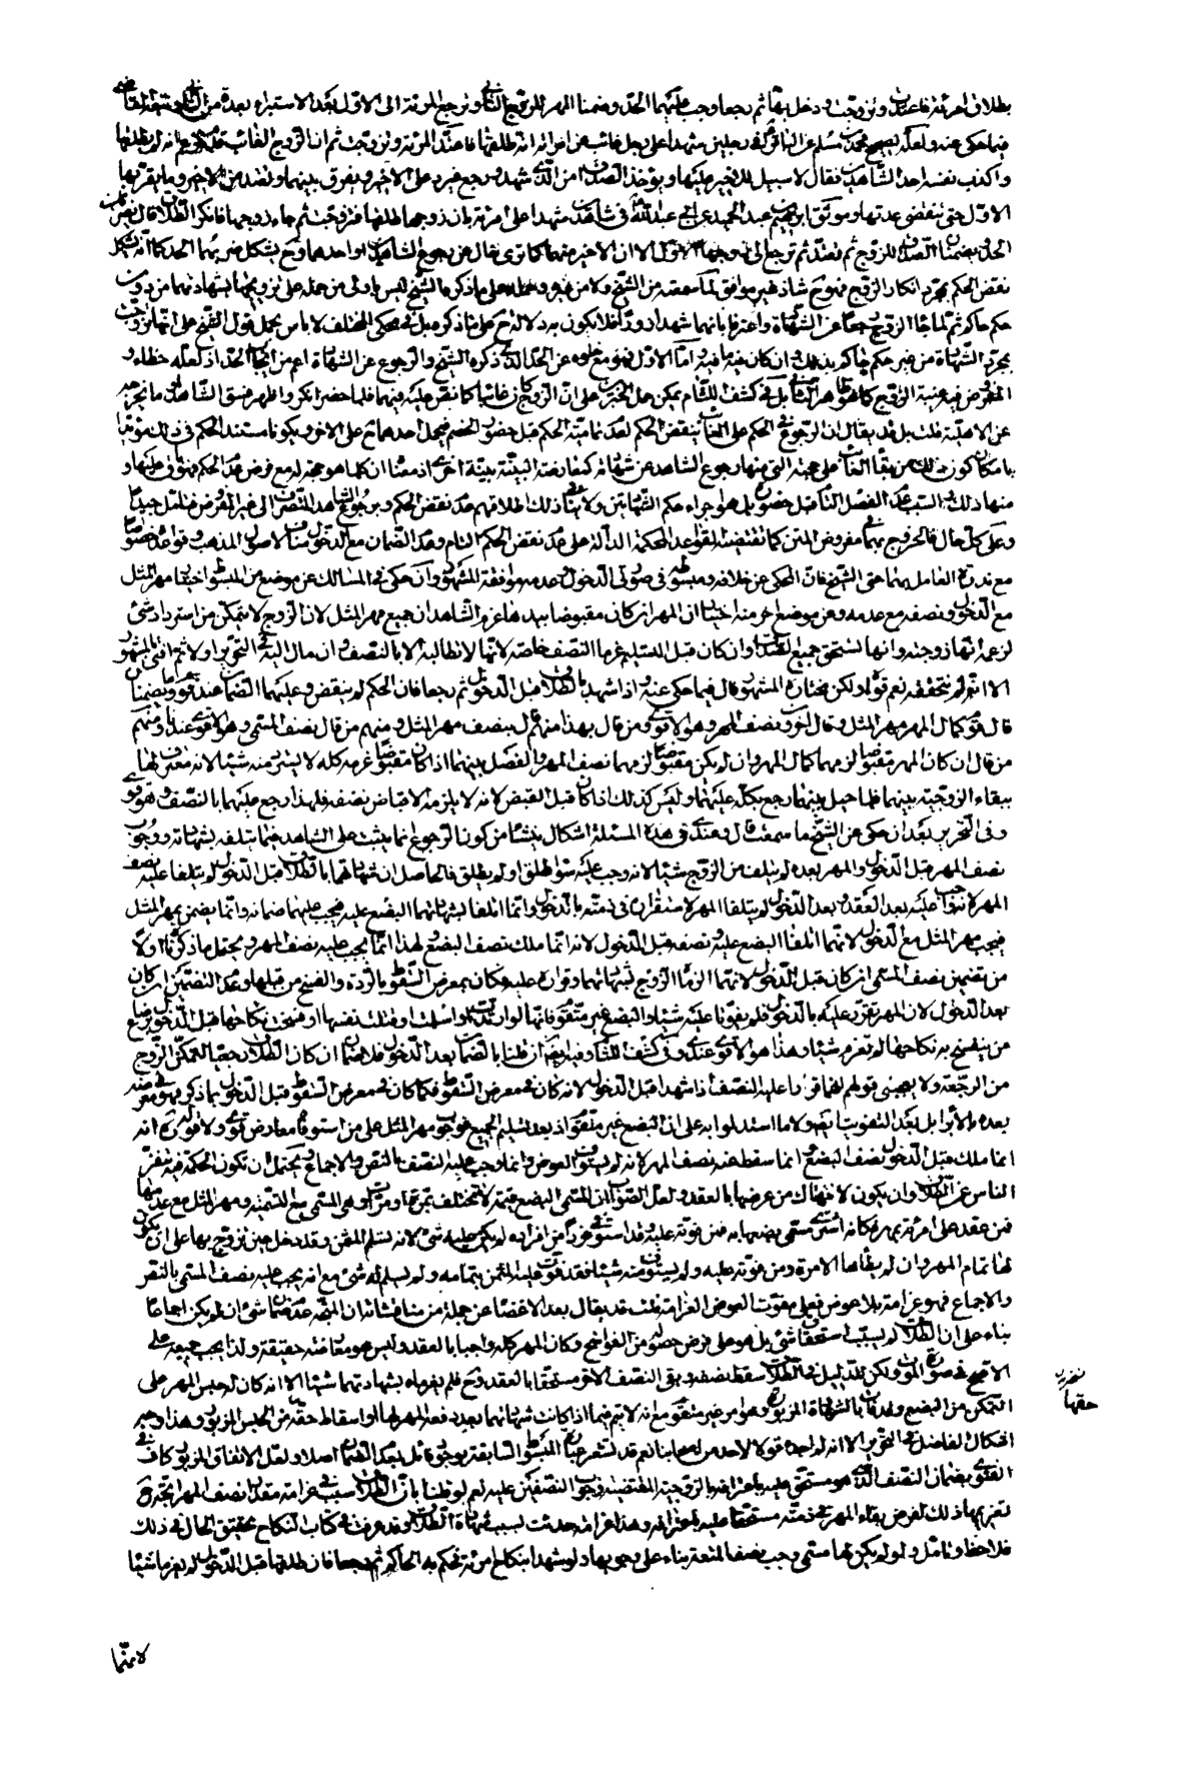 بطلاق امرئة فاعتدت وتزوجت ودخل بها ثم رجعا وجب عليهما الحد وضمنا المهر للزوج الثاني وترجع المرئة الى الاول بعد الاستبراء بعدة من الثاني
فيما حكى عنه ولعله لصحيح محمد بن مسلم عن الباقر في رجلين شهدا على رجل غائب عن امرأته انه طلقها فاعتدت المرئة وتزوجت ثم ان الزوج الغائب قدم فزعم انه لم يطلقها
واكذب نفسه احد الشاهدين فقال لا سبيل للاخير عليها ويؤخذ الصداق من الذي شهد ورجع فيرد على الاخير ويفرق بينهما وتعتد من الاخير وما يقربها
الاول حتى تنقضي عدتها وموثق ابراهيم بن عبد الحميد عن ابي عبد الله في شاهدين شهدا على امرئة بان زوجها طلقها فتزوجت ثم جاء زوجها فانكر الطلاق قال يضربان
الحد ويضمنان الصداق للزوج ثم تعتد ثم ترجع الى زوجها الاول الا ان الاخير منهما كما ترى خال عن رجوع الشاهدين او احدهما وح يشكل ضربهما الحد كما انه يشكل
نقض الحكم بمجرد انكار الزوج فهو ح شاذ غير موافق لما سمعته من الشيخ ولا من غيره وحمله على ما ذكره الشيخ ليس باولى من حمله على تزويجها بشهادتهما من دون
حكم حاكم ثم لما جاء الزوج رجعا عن الشهادة واعترفا بانهما شهدا زورا فلا يكون به دلالة ح على ما ذكره بل في محكى المختلف لا باس بحمل قول الشيخ على انها تزوجت
بمجرد الشهادة من غير حكم حاكم بذلك وان كان فيه ما فيه واما الاول فهو مع خلوه عن الحد الذي ذكره الشيخ والرجوع عن الشهادة اعم من ايجابها الحد اذ لعله خطاء و
المفروض فيه غيبة الزوج كما هو ظاهر الثاني بل في كشف اللثام يمكن حمل الخبرين على ان الزوج كان غائبا كما نص عليه فيهما فلما حضر انكر واظهر فسق الشاهدين او ما يخرجه
عن الاهلية قلت بل قد يقال ان الرجوع في الحكم على الغائب ينقض الحكم لعدم تمامية الحكم قبل حضور الخصم فيحمل احدهما ح على الاخر ويكونا مستند الحكم في ذلك مؤيدا
بامكان كون ذلك من بقاء الغائب على حجته التي منها رجوع الشاهد عن شهادته كمعارضة البينة ببينة اخرى اذ معنا ان كلما هو حجة له مع فرض عدم الحكم فهو باق عليها و
منها ذلك والسبب عدم الفصل التام قبل حضوره بل هو اجراء حكم الشهادتين ولا ينافي ذلك اطلاقهم عدم نقض الحكم برجوع الشاهد المنصرف الى غير المفروض فتامل جيدا
وعلى كل حال فالخروج بهما في مفروض المتن كما تقتضيه القواعد المحكمة الدالة على عدم نقض الحكم التام وعدم الضمان مع الدخول مناف لاصول المذهب وقواعده خصوصا
مع ندرة العامل بهما حتى الشيخ فان المحكى عن خلافه ومبسوطه في صورتي الدخول وعدمه موافقة المشهور وان حكى في المسالك عن موضع من المبسوط اختيار مهر المثل
مع الدخول ونصفه مع عدمه وعن موضع اخر منه اختيار ان المهر ان كان مقبوضا بيدها غرم الشاهدان جميع مهر المثل لان الزوج لا يتمكن من استرداد شئ
لزعمه انها زوجته وانها تستحق جميع الصداق وان كان قبل التسليم غرما النصف خاصة لانها لا تطالبه الا بالنصف وان مال اليه في التحرير اولا ثم افتى بالمشهور
الا انه لم نتحققه نعم قواه ولكن مختاره المشهور قال فيما حكى عنه اذا شهدا بالطلاق قبل الدخول ثم رجعا فان الحكم لم ينقض وعليهما الضمان عند قوم وكم يضمنان
قال قوم كمال المهر مهر المثل وقال اخرون نصف المهر وهو الاقوى ومن قال بهذا منهم من قال بنصف مهر المثل ومنهم من قال بنصف المسمى وهو الاقوى عندنا ومنهم
من قال ان كان المهر مقبوضا لزمهما كمال المهر وان لم يكن مقبوضا لزمهما نصف المهر والفصل بينهما اذا كان مقبوضا غرمه كله لا يسترد منه شيئا لانه معترف لها
ببقاء الزوجية بينهما فلما حيل بينهما رجع بكله عليهما وليس كذلك اذا كان قبل القبض لانه لا يلزمه الا اقباض نصفه فلهذا رجع عليهما بالنصف وهو قوي
وفي التحرير بعد ان حكى عن الشيخ ما سمعت قال وعندي في هذه المسئلة اشكال ينشأ من كون الرجوع انما يثبت على الشاهد فيما يتلفه بشهادته ووجوب
نصف المهر قبل الدخول والمهر بعده لم يتلف من الزوج شيئا لانه وجب عليه سواء طلق او لم يطلق فالحاصل ان شهادتهما بالطلاق قبل الدخول لم يتلفا عليه نصف
المهر لانه واجب عليه بعد العقد وبعد الدخول لم يتلفا المهر لاستقراره في ذمته بالدخول وانما اتلفا بشهادتهما البضع عليه فيجب عليهما ضمانه وانما يضمن بمهر المثل
فيجب مهر المثل مع الدخول لانهما اتلفا البضع عليه ونصفه قبل الدخول لانه انما ملك نصف البضع ولهذا انما يجب عليه نصف المهر ويحتمل ما ذكرناه اولا
من تضمين نصف المسمى ان كان قبل الدخول لانهما الزما الزوج بشهادتهما وقرراه عليه وكان بمعرض السقوط بالردة والفسخ من قبلها وعدم التضمين ان كان
بعد الدخول لان المهر تقرر عليه بالدخول فلم يفوتا عليه شيئا والبضع غير متقوم فانها لو ارتدت او اسلمت او قتلت نفسها او فسخت نكاحها قبل الدخول برضاع
من ينفسخ به نكاحها لم تغرم شيئا وهذا هو الاقوى عندي وفي كشف اللثام وفيه ايضا ان قلنا بالضمان بعد الدخول فلا ضمان ان كان الطلاق رجعيا لتمكن الزوج
من الرجعة ولا يعجبني قولهم انهما قررا عليه النصف اذا شهدا قبل الدخول لانه كان في معرض السقوط فكما كان في معرض السقوط قبل الدخول بما ذكر فهو في معرضه
بعده بالابراء بل بعد التفويت ايضا ولا ما استدلوا به على ان البضع غير متقوم اذ بعد تسليم الجميع فوجوب مهر المثل على من استوفاه معارض قوي ولا قوله انه
انما ملك قبل الدخول نصف البضع وانما سقط عنه نصف المهر لانه لم يستوف العوض وانما وجب عليه النصف بالنص والاجماع ويحتمل ان تكون الحكمة فيه تنفر
الناس عن الطلاق وان يكون لانتهاك من عرضها بالعقد ولعل الصواب ان المسمى للبضع قيمة لا تختلف وهي المسمى مع التسمية ومهر المثل مع عدمها
فمن عقد على امرئة بمهر فكانه اشترى بضعها به فمن فوته عليه وقد استوفى فردا من افراده لم يكن عليه شئ لانه تسلم المثمن وقد دخل حين تزوج بها على ان يكون
لها تمام المهر وان لم يطأها الا مرة ومن فوته عليه ولم يستوف منه شيئا فقد فوت عليه المثمن بتمامه ولم يسلم له شئ مع انه يجب عليه نصف المسمى بالنص
والاجماع فهو غرامة بلا عوض فعلى مفوت العوض الغرامة قلت قد يقال بعد الاغضاء عن جملة من مناقشاته ان المتجه عدم ضمان شئ ان لم يكن اجماعا
بناء على ان الطلاق لم يسبب استحقاق شئ بل هو على فرض حصوله من الفواسخ وكان المهر كله واجبا بالعقد وليس هو معاوضة حقيقة ولذا يجب جميعه على
الاصح في صورة الموت ولكن للدليل في الطلاق سقط نصفه وبقى النصف الاخر مستحقا بالعقد وح فلم يغرماه بشهادتهما شيئا الا انه كان له حبس المهر على
التمكن من البضع وقد فات بالشهادة المزبورة وهو امر غير متقوم مع انه لا يتم فيما اذا كانت شهادتهما بعد دفعه المهر لها او اسقاط حقه من الحبس المزبور وهذا وجه
اشكال الفاضل في التحرير الا انه لم اجده قولا لاحد من اصحابنا نعم قد تشعر عبارة المبسوط السابقة بوجود قائل بعدم الضمان اصلا ولعل الاتفاق المزبور كاف في
الفتوى بضمان النصف الذي هو مستحق عليه باعترافه بالزوجية المقتضية وجوب النصفين عليه نعم لو قلنا بان الطلاق سبب في غرامة مقدار نصف المهر اتجه ح
تغريمهما ذلك لفرض بقاء المهر في ذمته مستحقا عليه باعترافه وهذا غرامة حدثت بسبب شهادة الطلاق وقد عرفت في كتاب النكاح تحقيق الحال في ذلك
فلاحظ وتامل ولو لم يكن لها مسمى وجب نصف المتعة بناء على وجوبها ولو شهدا بنكاح امرئة فحكم به الحاكم ثم رجعا فان طلقها قبل الدخول لم يغرما شيئا
حقها
لانهما